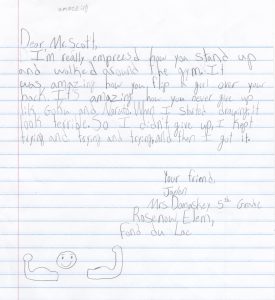 amazing
Dear, Mr. Scott,
I'm really empress'd how you stand up
and walked around the gym. It
was amazing how you flip a girl over your
back. It's amazing how you never give up
like Goku and Naruto. When I started drawing it
look terrible. So I didn't give up, I kept
trying and trying and trying, and then I got it.
Your friend,
Mrs. 5th Grade
Rosenow Elem,
Fond du Lac